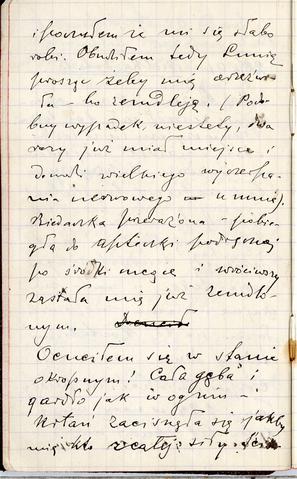 i poczułem że mi się słabo
robi. Obudziłem tedy Lunię
prosząc żeby mię orzeźwi-
ła – bo zemdleję. (Podo-
bny wypadek, niestety, dwa
razy już miał miejsce i
dowodzi wielkiego wyczerpa-
nia nerwowego u mnie).
Biedaczka przerażona – pobie-
gła do apteczki podręcznej
po środki mogące i wróciwszy
zastała mię już zemdlo-
nym.
Ocuciłem się w stanie
okropnym! Cała gęba i
gardło jak w ogniu –
Krtań zacisnęła się jakby
mię kto z całej siły